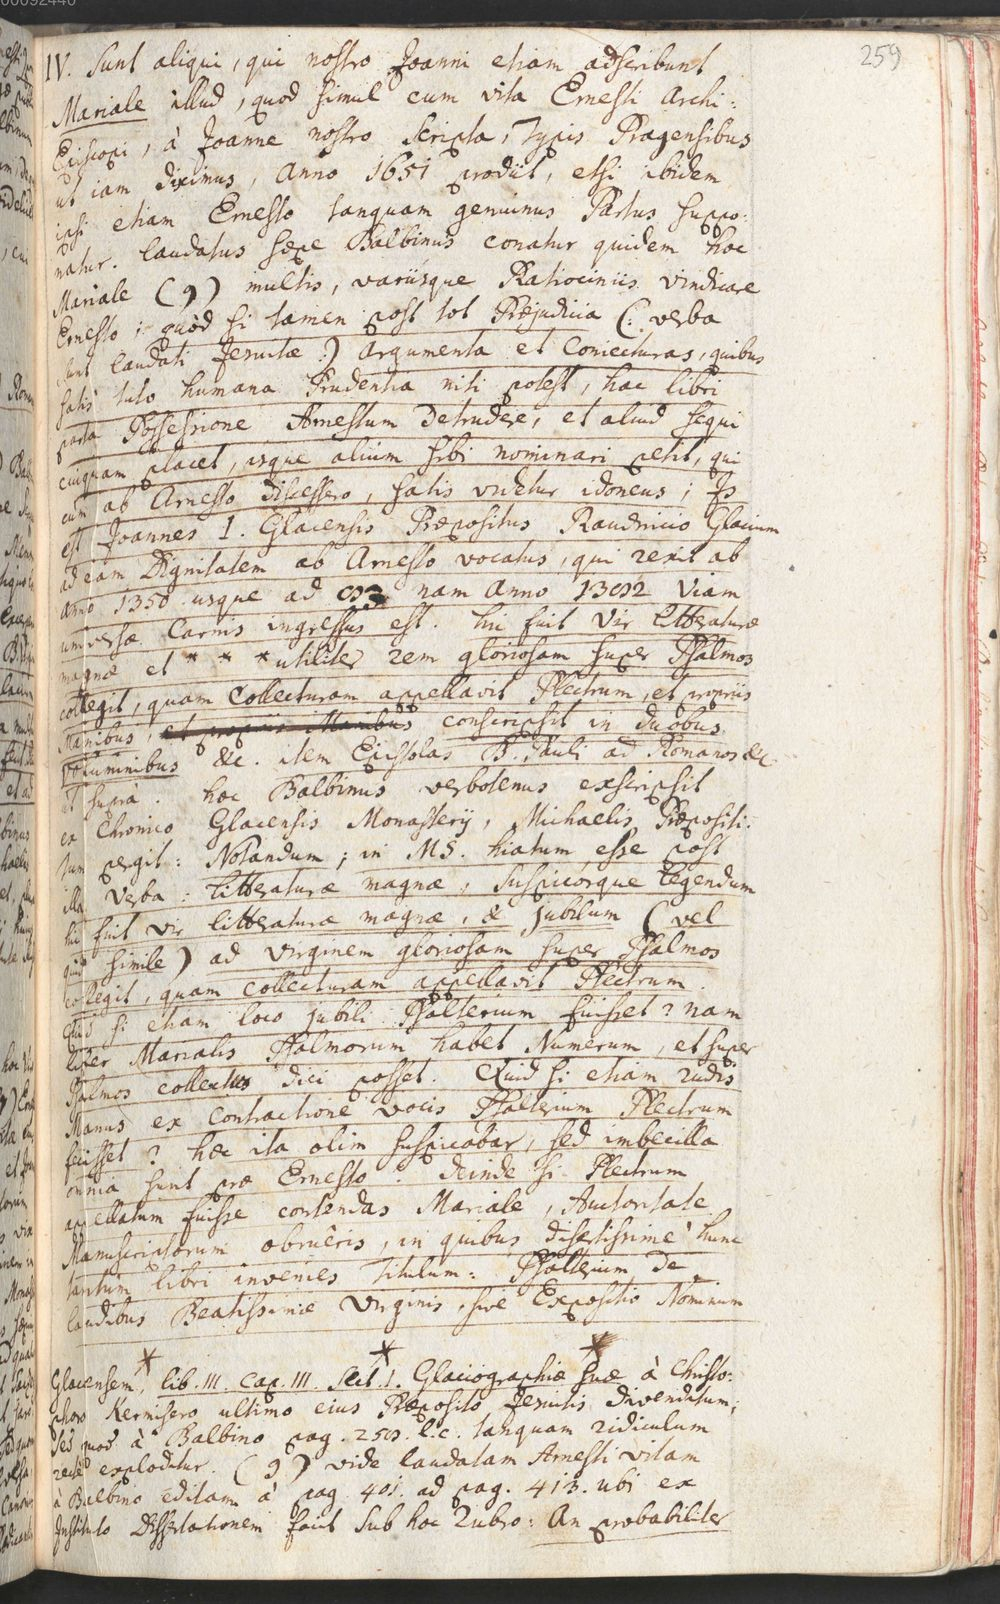 259
IV. Sunt aliqui, qui nostro Joanni etiam adscribunt
Mariale illud, quod simul cum vita Ernesti Archi:
Episcopi, à Joanne nostro scripta, Typis Pragensibus
ut iam diximus, Anno 1651 prodiit, etsi ibidem
ipsi etiam Ernesto tanquam genuinus Partus suppo:
natur. laudatus sæpe Balbinus conatur quidem hoc
Mariale (9) multis, variisque Ratiociniis vindicare
Ernesto; quòd si tamen post tot Præjudicia (: verba
sunt laudati Jesuitæ :) Argumenta et Coniecturas, quibus
satis tuto humana Prudentia niti potest, hac libri
parta Possessione Arnestum Detrudere, et aliud sequi
cuiquam placet, isque alium sibi nominari petit, qui
cum ab Arnesto discessero, satis videtur idoneus; Is
est Joannes I. Glacensis Præpositus Raudnicio Glacium
ad eam Dignitatem ab Arnesto vocatus, qui rexit ab
Anno 1350 usque ad nam Anno 1392 Viam
universæ Carnis ingressus est. hic fuit Vir litteraturæ
magnæ et * * * utiliter rem gloriosam super Psalmos
collegit, quam Collecturam appellavit Plectrum, et propriis
Manibus, et propriis Manibus conscripsit in duobus
voluminibus &c. item Epistolas B. Pauli ad Romanos &c.
ut suprà. hoc Balbinus verbotenus exscripsit
ex Chronico Glacensis Monasterij, Michaelis Præpositi.
tum pergit: Notandum; in MS. hiatum esse post
illa Verba: litteraturæ magnæ, suspicorque legendum
hic fuit vir litteraturæ magnæ, & jubilum (vel
quid simile) ad Virginem gloriosam super Psalmos
collegit, quam collecturam appellavit Plectrum.
Quid si etiam loco jubili Psalterium fuisset? nam
liber Marialis Psalmorum habet Numerum, et super
Psalmos collectus dici posset. Quid si etiam rudis
Manus ex contractione vocis Psalterium Plectrum
fecisset? hæc ita olim suspicabar, sed imbecilla
omnia sunt præ Ernesto. Deinde si Plectrum
appellatum fuisse contendas Mariale, Autoritate
Manuscriptorum obrueris, in quibus disertissimè hunc
tantum libri invenies Titulum: Psalterium de
laudibus Beatissimæ Virginis, sive Expositio Nominum
* * *
Glacensem, lib. III. cap. III. Sect. I. Glaciographiæ suæ à Christo:
phoro Kernisero ultimo eius Præposito Jesuitis divenditum;
sed quod à Balbino pag. 259. l.c. tanquam ridiculum
rectè exploditur. (9) vide laudatam Arnesti vitam
à Balbino editam à pag. 401. ad pag. 413. ubi ex
Instituto Dissertationem facit sub hoc Rubro: An probabiliter